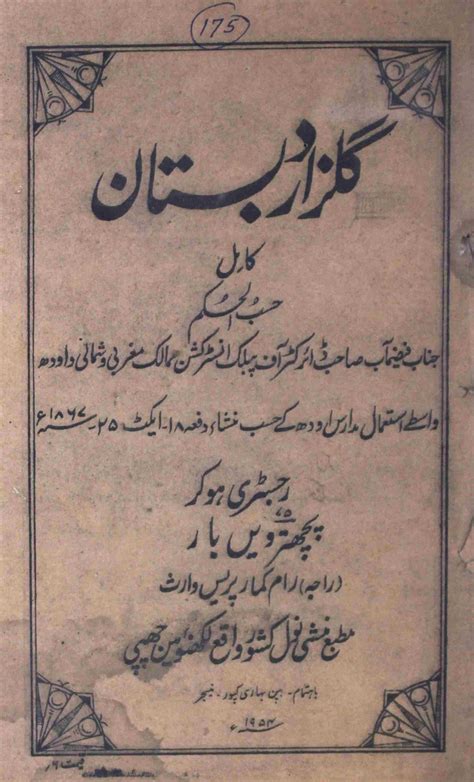 175
گلزار دبستان
کامل
حسب الحکم
جناب فیضمآب صاحب ڈائرکٹر آف پبلک انسٹرکشن ممالک مغربی وشمالی واودھ
واسطے استعمال مدارس اودھ کے حسب منشاء دفعہ ۱۸۔ ایکٹ ۲۵۔ سنہ ۱۸۶۷ء
رجسٹری ہوکر
۷۵
پچھترویں بار
(راجہ) رام کمار پریس وارث
مطبع منشی نول کشور واقع لکھنؤ مین چھپی
باہتمام۔ بپن بہاری کپور۔ منیجر
۱۹۵۴ء
قیمت ۶/